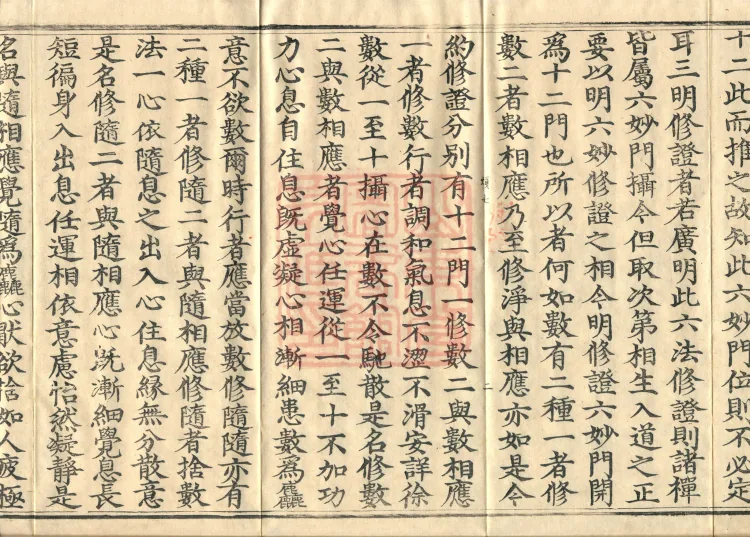 十二此而推之故知此六妙門位則不必定
耳三明修證者若廣明此六法修證則諸禪
皆屬六妙門攝今但取次第相生入道之正
要以明六妙修證之相今明修證六妙門開
爲十二門也所以者何如數有二種一者修
數二者數相應乃至修淨與相應亦如是今
約修證分別有十二門一修數二與數相應
一者修數行者調和氣息不澀不滑安詳徐
數從一至十攝心在數不令馳散是名修數
二與數相應者覺心任運從一至十不加功
力心息自住息既虛凝心相漸細患數爲麤
意不欲數爾時行者應當放數修隨隨亦有
二種一者修隨二者與隨相應修隨者捨數
法一心依隨息之出入心住息緣無分散意
是名修隨二者與隨相應心既漸細覺息長
短徧身入出息任運相依意慮怡然凝靜是
名與隨相應覺隨爲麤心猒欲捨如人疲極